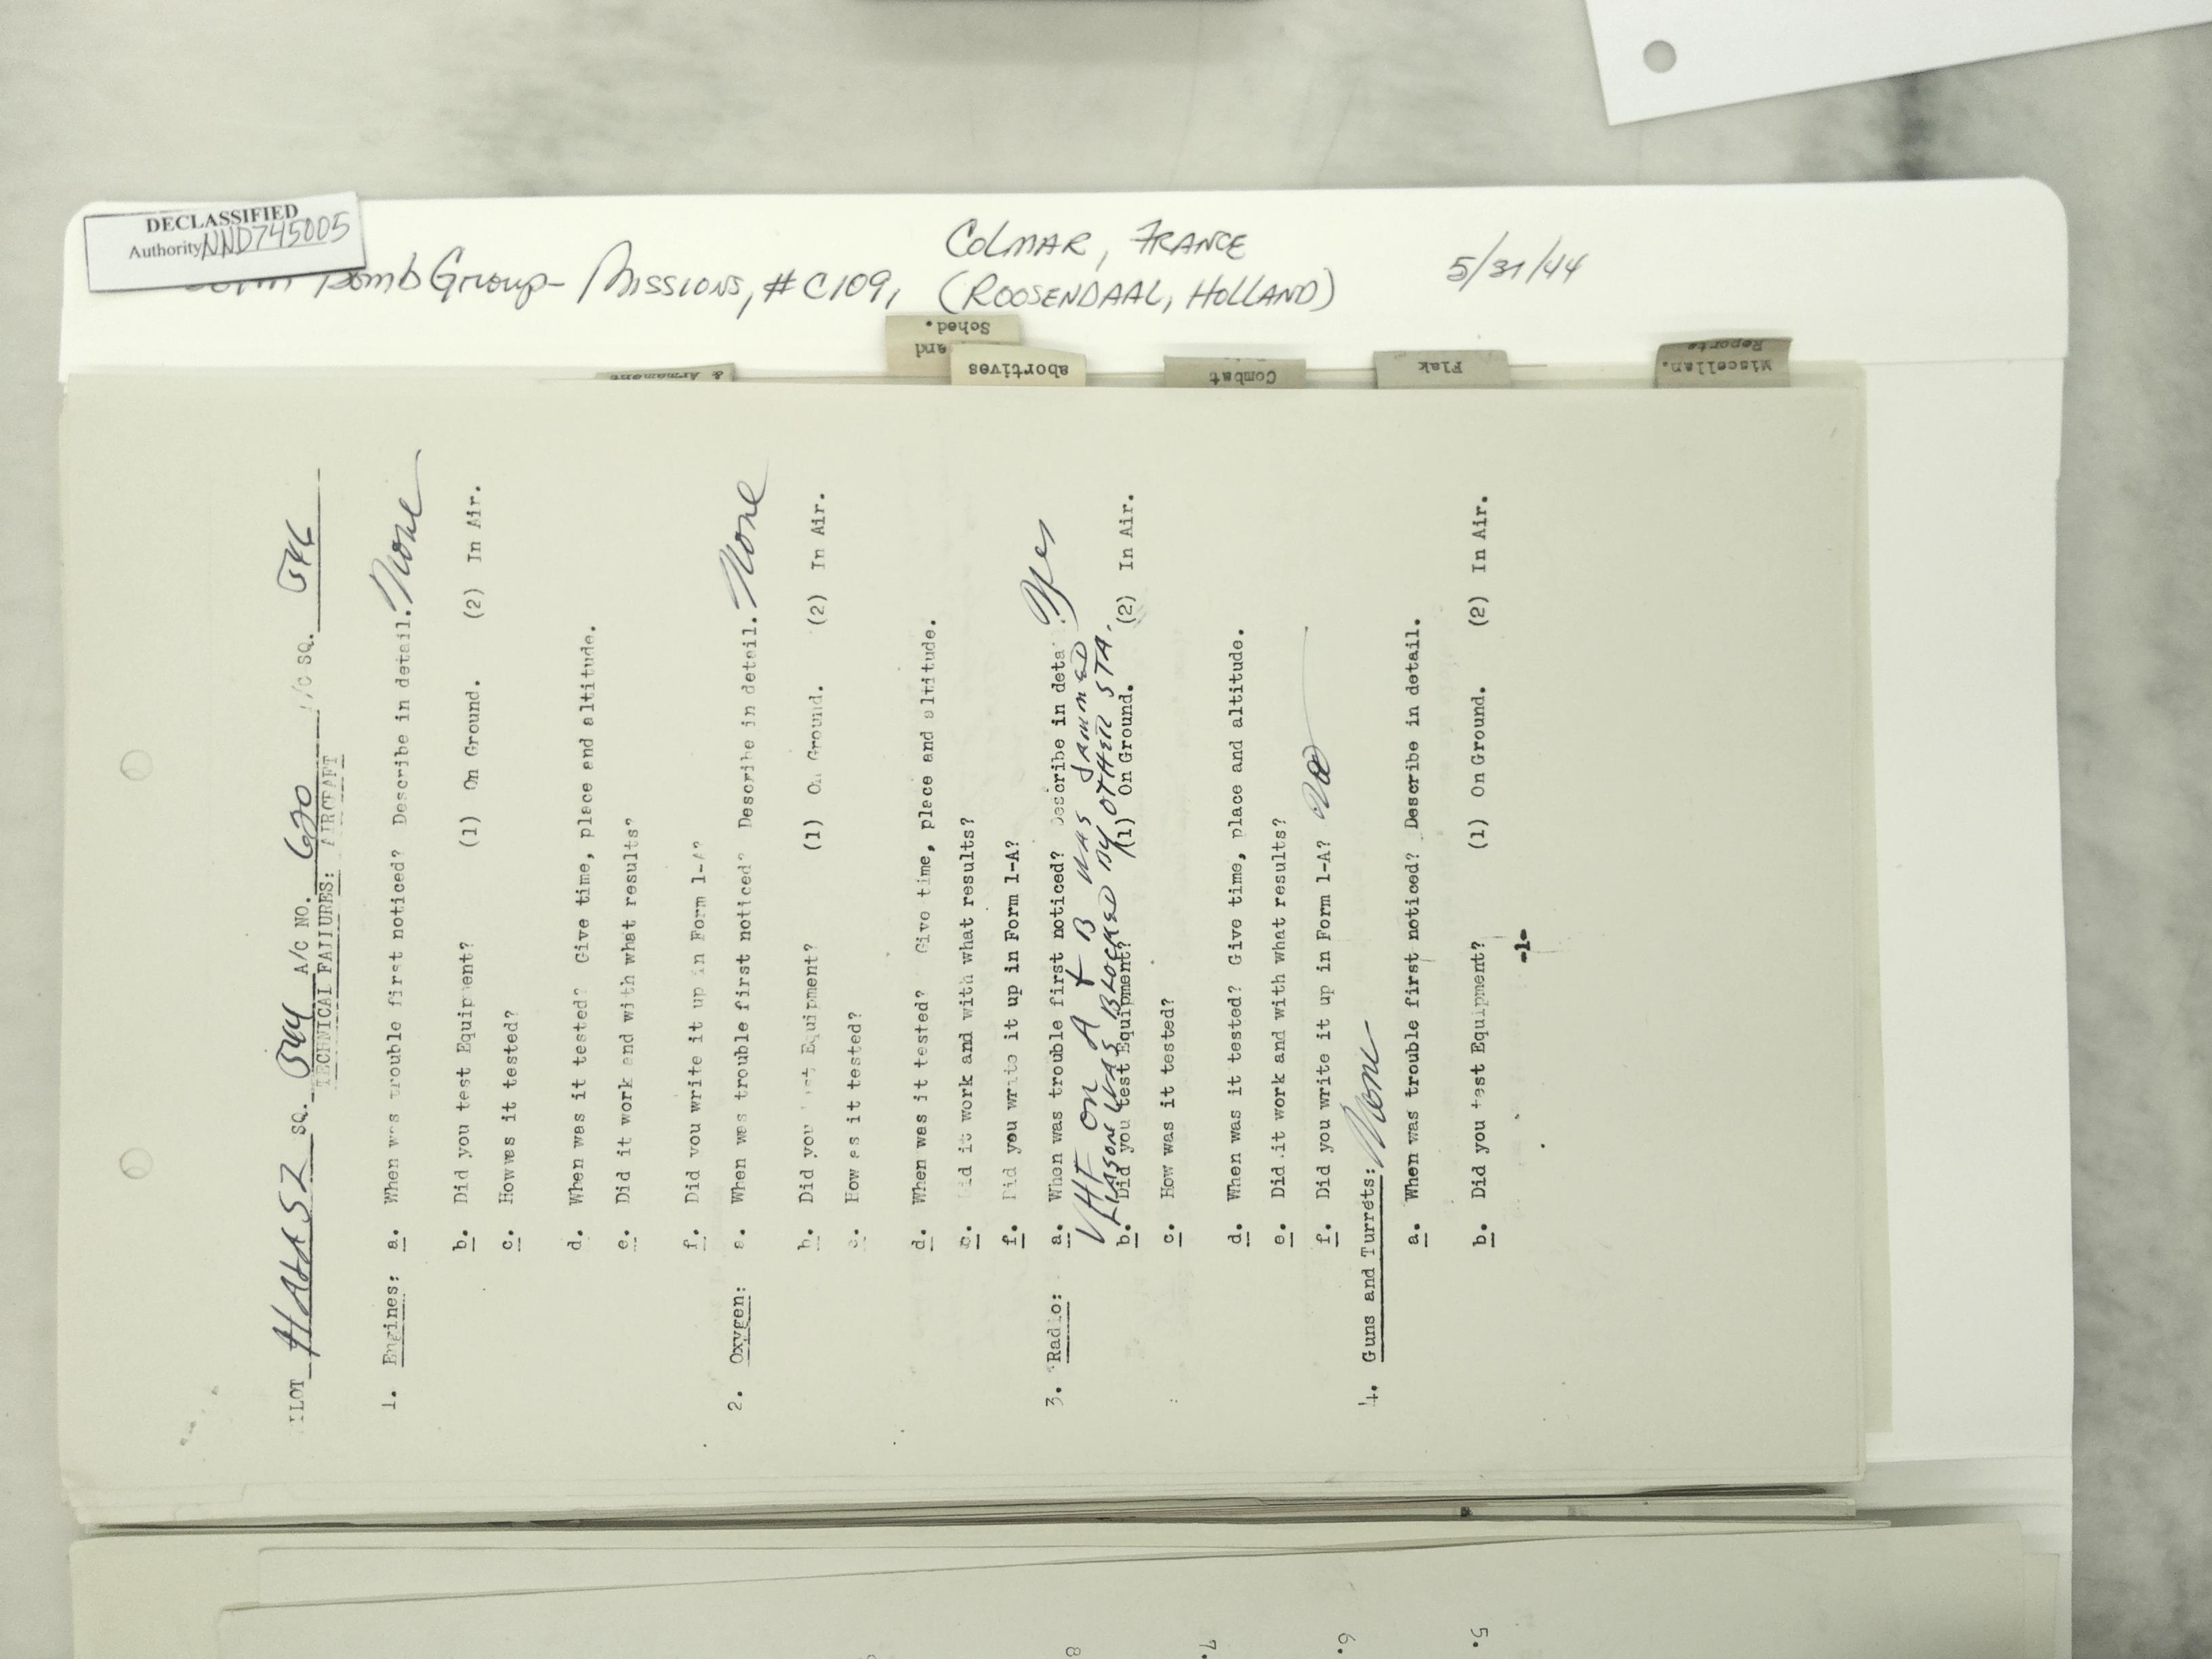 DECLASSIFIED
Authority NND745005
Bomb Group - Missions, #C109,
COLMAR, FRANCE
(ROOSENDAAL, HOLLAND)
5/31/44
& Armament
and Sched.
abortives
Combat
Flak
Miscellan. Reports
PILOT HALASZ SQ. 544 A/C NO. 620 A/C SQ. 546
TECHNICAL FAILURES: AIRCRAFT
1. Engines: a. When was trouble first noticed? Describe in detail. None
b. Did you test Equipment? (1) On Ground. (2) In Air.
c. How was it tested?
d. When was it tested? Give time, place and altitude.
e. Did it work and with what results?
f. Did you write it up in Form 1-A?
2. Oxygen: a. When was trouble first noticed? Describe in detail. None
b. Did you test Equipment? (1) On Ground. (2) In Air.
c. How as it tested?
d. When was it tested? Give time, place and altitude.
e. Did it work and with what results?
f. Did you write it up in Form 1-A?
3. Radio: a. When was trouble first noticed? Describe in detail. Yes
VHF ON A & B WAS JAMMED
LIASON WAS BLOCKED BY OTHER STA.
b. Did you test Equipment? (1) On Ground. (2) In Air.
c. How was it tested?
d. When was it tested? Give time, place and altitude.
e. Did it work and with what results?
f. Did you write it up in Form 1-A? No
4. Guns and Turrets: None
a. When was trouble first noticed? Describe in detail.
b. Did you test Equipment? (1) On Ground. (2) In Air.
-1-
8
7.
6.
5.